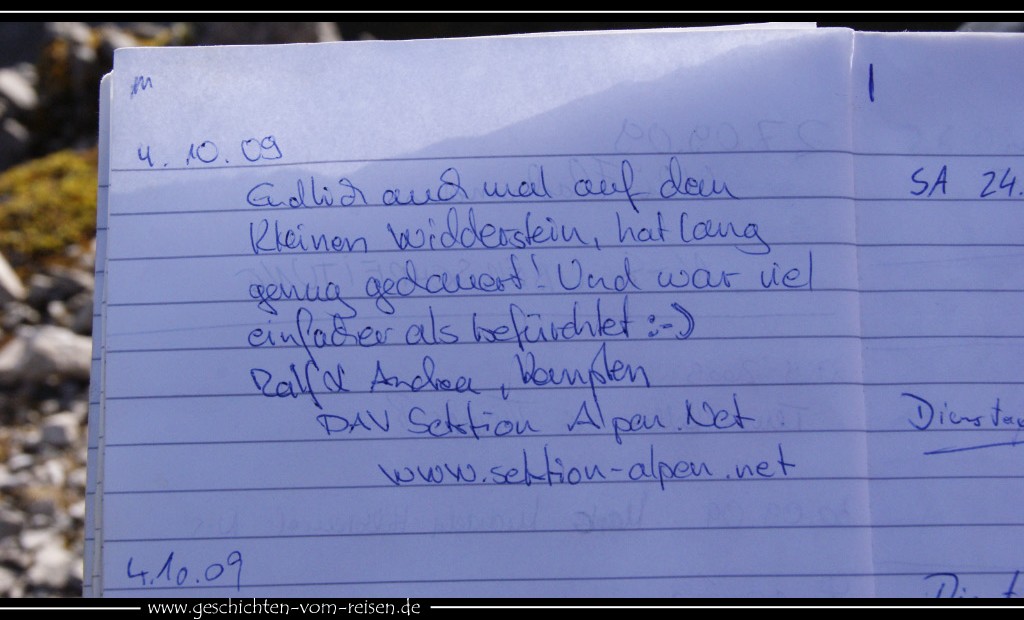 4.10.09
Endlich auch mal auf dem
kleinen Widderstein, hat lang
genug gedauert! Und war viel
einfacher als befürchtet :-)
Ralf & Andrea, Kempten
DAV Sektion Alpen.Net
www.sektion-alpen.net
4.10.09
SA 24.
Dienstag
www.geschichten-vom-reisen.de